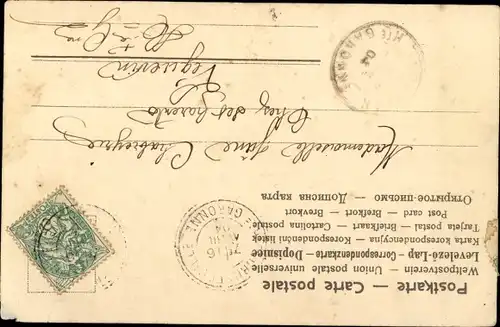 Postkarte — Carte postale
Weltpostverein — Union postale universelle
Levelező-Lap — Correspondenzkarte — Dopisnice
Karta korespondencyjna — Korespondenční lístek
Tarjeta postal — Briefkaart — Cartolina postale
Post card — Brefkort — Brevkort
Открытое письмо — Дописна карта
Mademoiselle Jane Chabreyrie
Chez ses Parents
à
Léguevin
Hte Gne
GARONNE
GARONNE